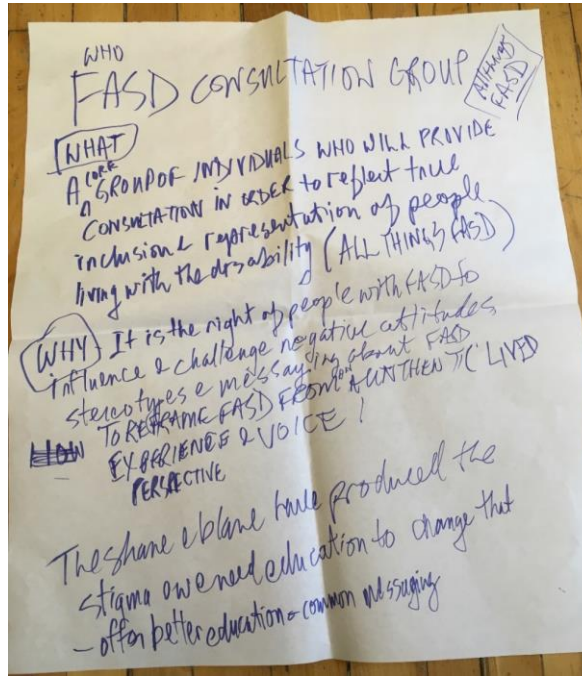 WHO
FASD CONSULTATION GROUP
All things
FASD
WHAT
A CORE GROUP OF INDIVIDUALS WHO WILL PROVIDE
CONSULTATION IN ORDER to reflect true
inclusion & representation of people
living with the disability (ALL THINGS FASD)
WHY It is the right of people with FASD to
influence & challenge negative attitudes
stereotypes & messaging about FASD
TO REFRAME FASD FROM AN AUNTHENTIC LIVED
EXPERIENCE & VOICE !
PERSPECTIVE
The shame & blame have produced the
stigma & we need education to change that
- offer better education & common messaging